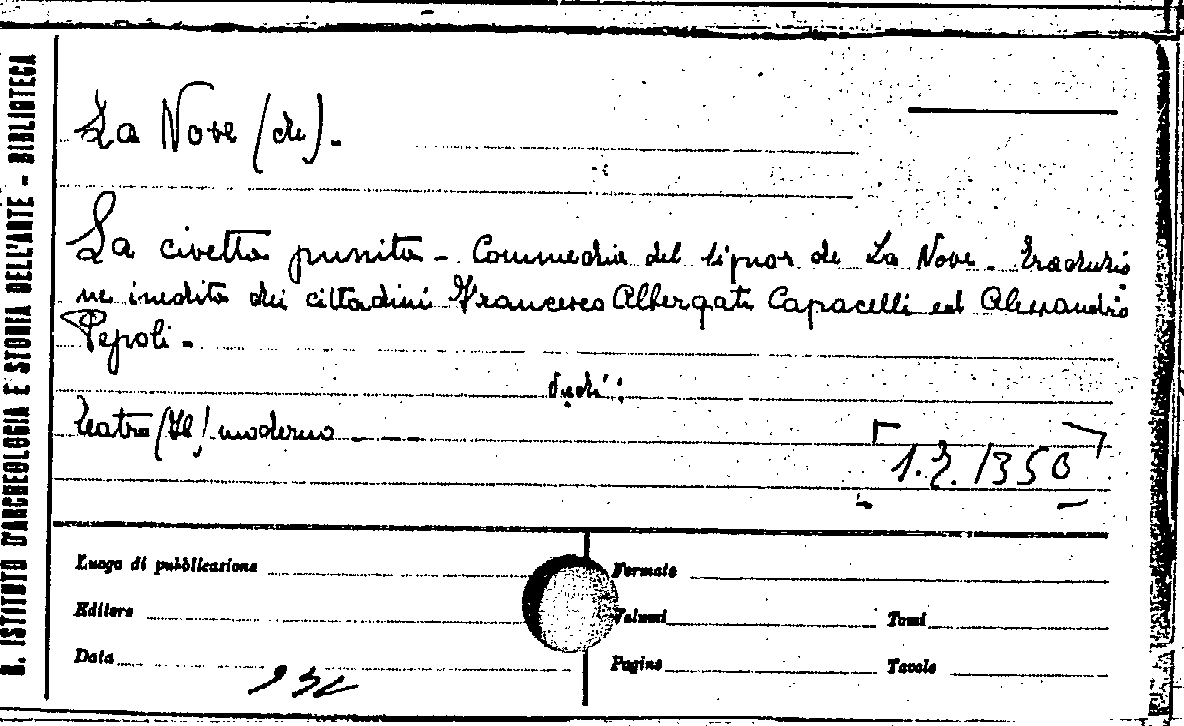 R. ISTITUTO D'ARCHEOLOGIA E STORIA DELL'ARTE - BIBLIOTECA
La Nove (de).
La civetta punita - Commedia del signor de La Nove. Traduzio
ne inedita dei cittadini Francesco Albergati Capacelli ed Alessandro
Pepoli.
Vedi:
Teatro (Il) moderno
Luogo di pubblicazione
Formato
Editore
Volumi
Tomi
Data
Pagine
Tavole